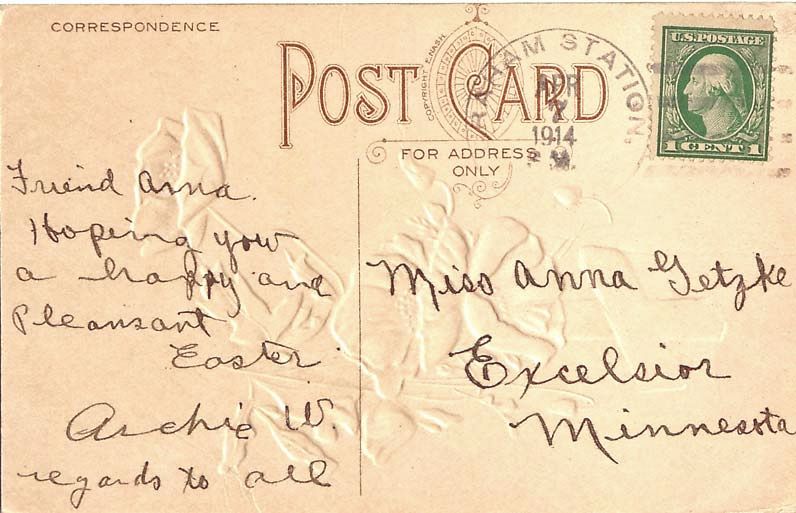 CORRESPONDENCE
POST CARD
COPYRIGHT E. NASH
FOR ADDRESS
ONLY
HAM STATION,
APR
7
1914
U.S. POSTAGE
1 CENT 1
Friend Anna.
Hoping you
a happy and
Pleansant
Easter
Archie W.
regards to all
Miss Anna Getzke
Excelsior
Minnesota